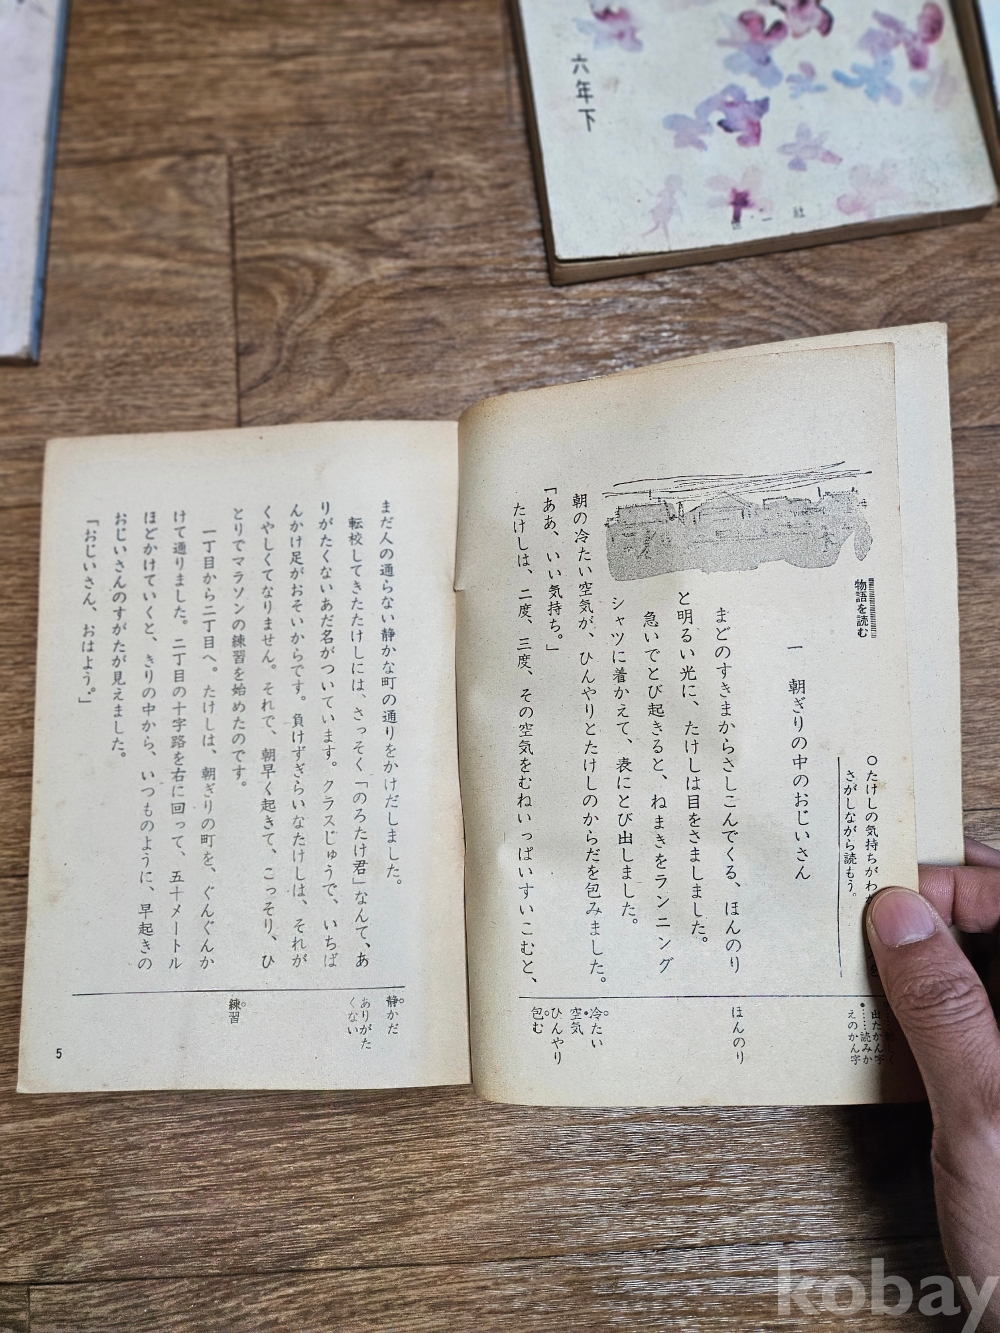 六年下
社
物語を読む
○たけしの気持ちがわ
さがしながら読もう。
一 朝ぎりの中のおじいさん
まどのすきまからさしこんでくる、ほんのり
と明るい光に、たけしは目をさましました。
急いでとび起きると、ねまきをランニング
シャツに着かえて、表にとび出しました。
朝の冷たい空気が、ひんやりとたけしのからだを包みました。
「ああ、いい気持ち。」
たけしは、二度、三度、その空気をむねいっぱいすいこむと、
出たかん字
•……読みか
えのかん字
ほんのり
冷たい
空気
ひんやり
包む
まだ人の通らない静かな町の通りをかけだしました。
転校してきたたけしには、さっそく「のろたけ君」なんて、あ
りがたくないあだ名がついています。クラスじゅうで、いちば
んかけ足がおそいからです。負けずぎらいなたけしは、それが
くやしくてなりません。それで、朝早く起きて、こっそり、ひ
とりでマラソンの練習を始めたのです。
一丁目から二丁目へ。たけしは、朝ぎりの町を、ぐんぐんか
けて通りました。二丁目の十字路を右に回って、五十メートル
ほどかけていくと、きりの中から、いつものように、早起きの
おじいさんのすがたが見えました。
「おじいさん、おはよう。」
静かだ
ありがた
くない
練習
5
kobay